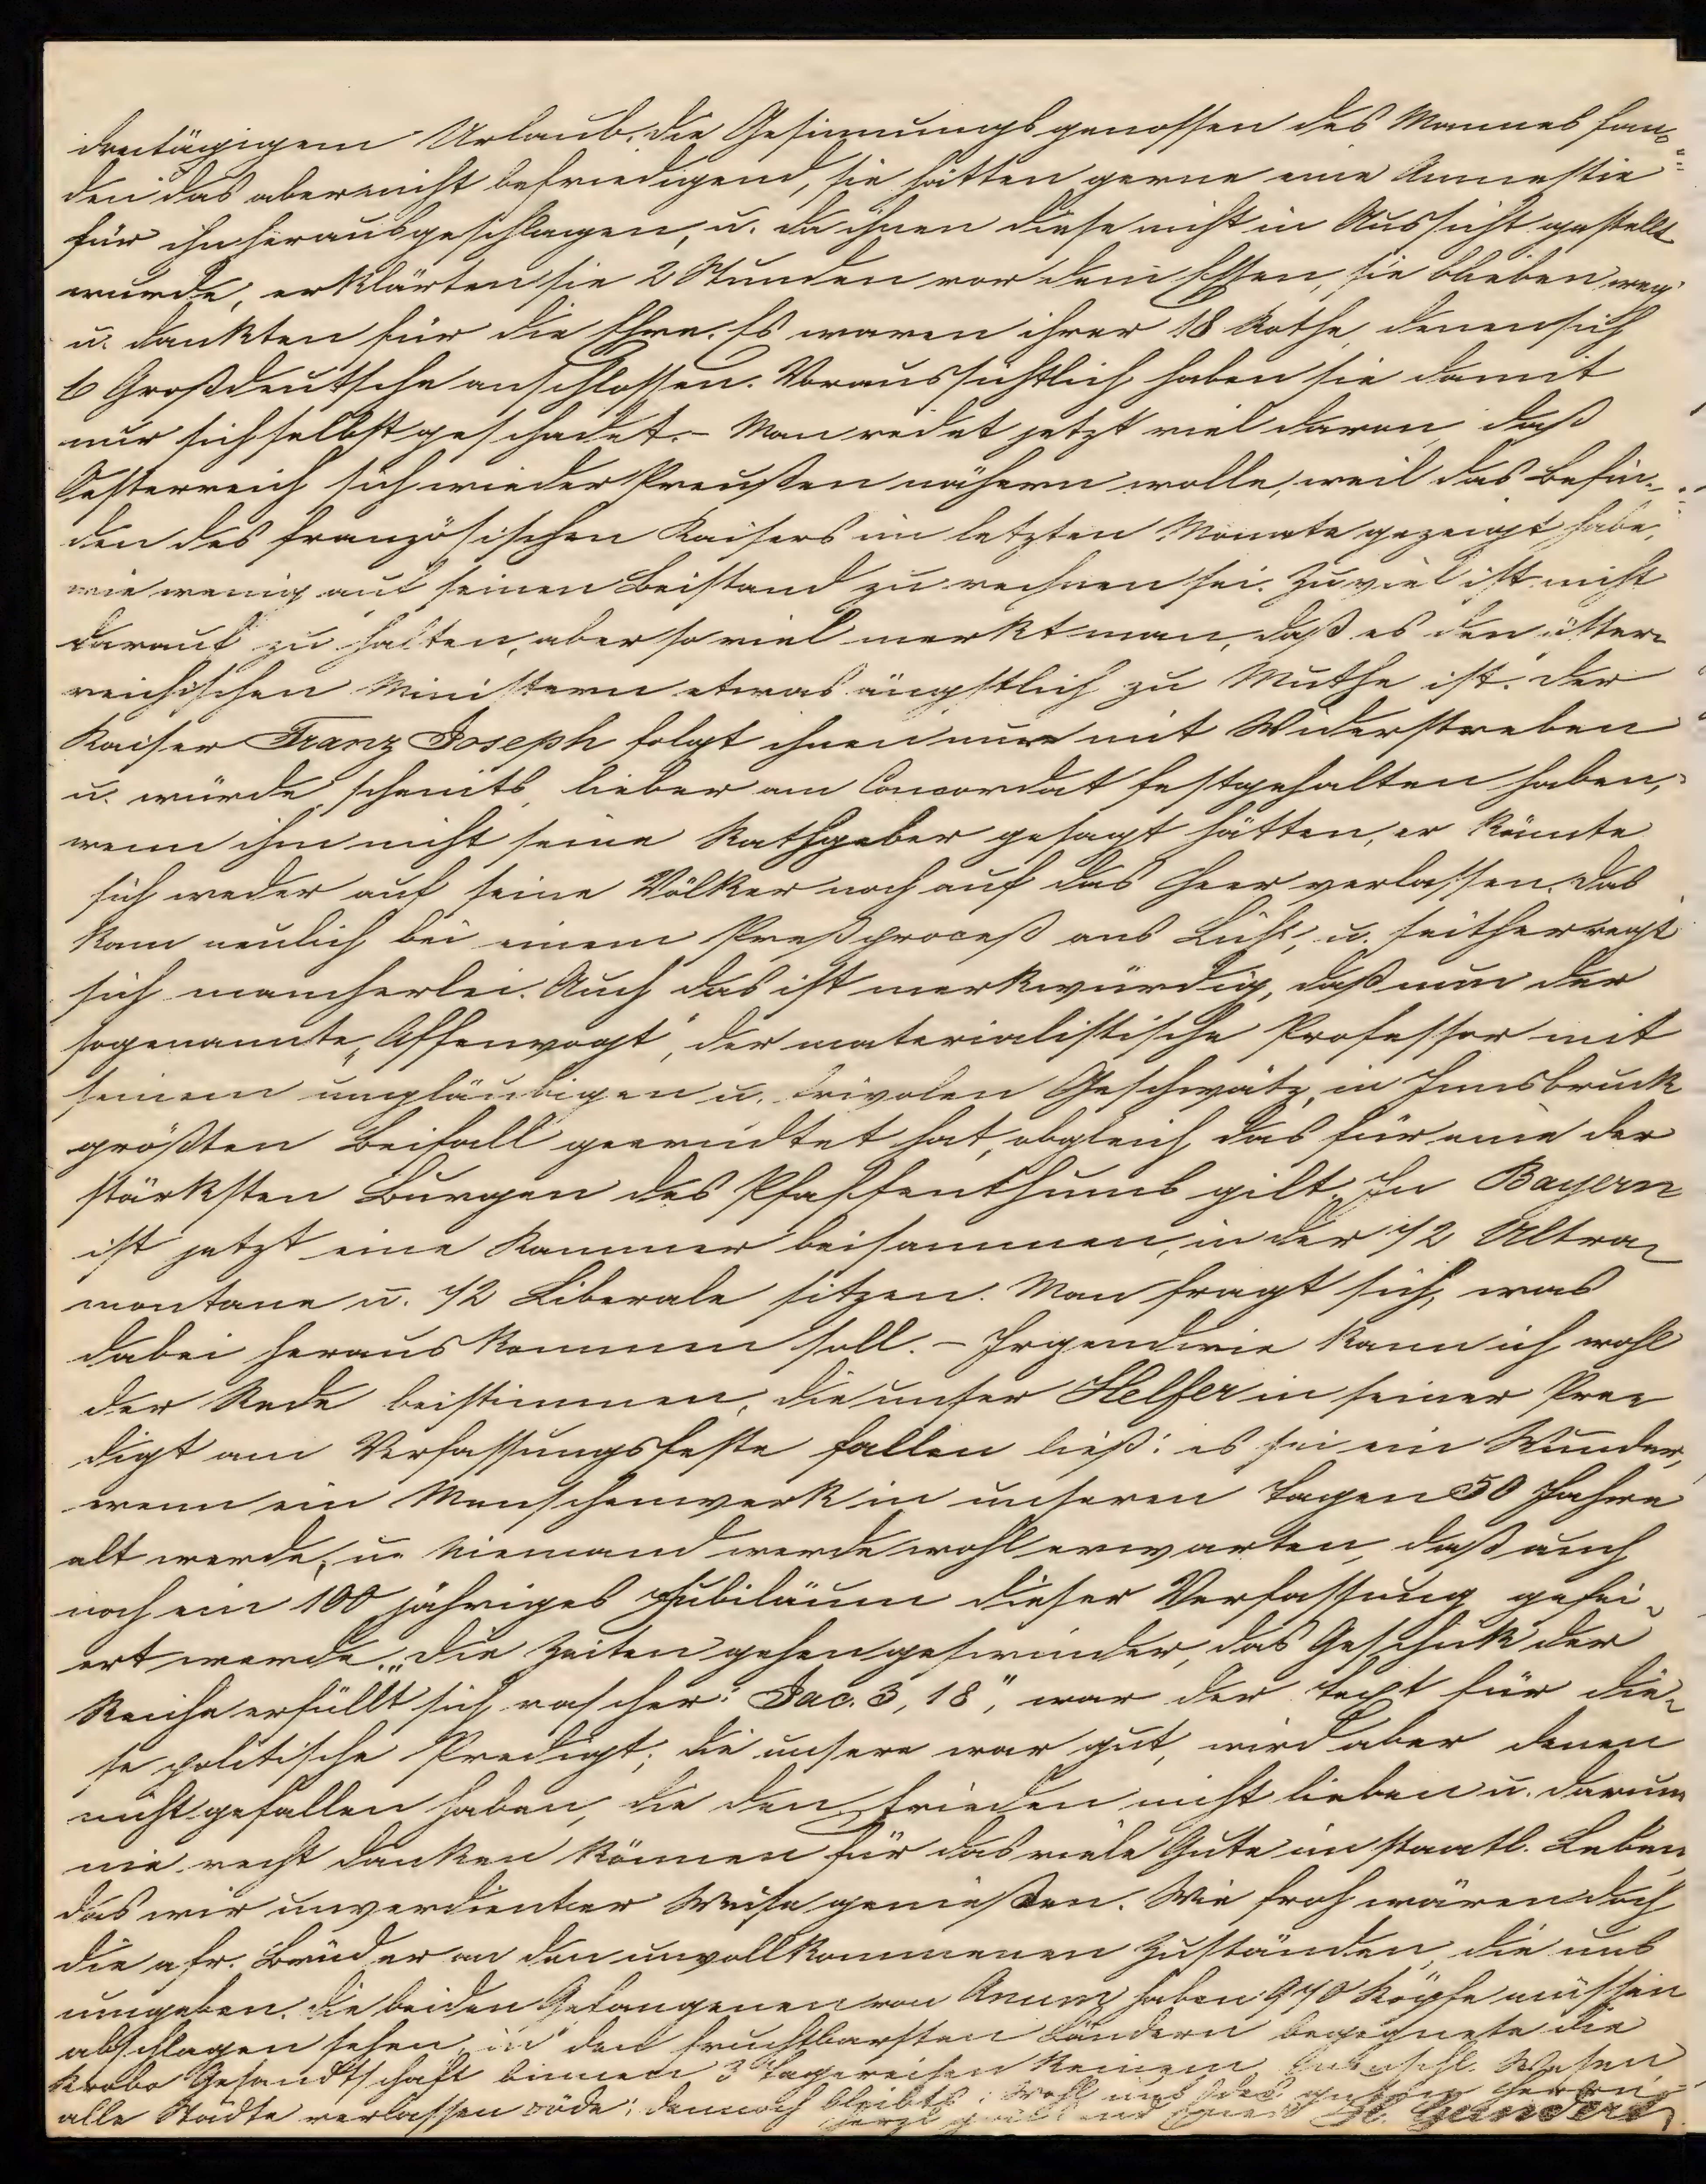 dreitägigem Urlaub. Die Gesinnungsgenossen des Mannes fan-
den das aber nicht befriedigend, sie hätten gerne eine Amnestie
für ihn herausgeschlagen, u. da ihnen diese nicht in Aussicht gestellt
wurde, erklärten sie 2 Stunden vor dem Essen, sie blieben weg
u. dankten für die Ehre. Es waren ihrer 18 Rothe, denen sich
6 Großdeutsche anschlossen. Voraussichtlich haben sie damit
nur sich selbst geschadet. – Man redet jetzt viel davon, daß
Oesterreich sich wieder Preußen nähern wolle, weil das Befin-
den des französischen Kaisers im letzten Monate gezeigt habe,
wie wenig auf seinen Beistand zu rechnen sei. Zu viel ist nicht
darauf zu halten, aber so viel merkt man, daß es den öster-
reichischen Ministern etwas ängstlich zu Muthe ist. Der
Kaiser Franz Joseph folgt ihnen nur mit Widerstreben
u. würde scheints lieber am Concordat festgehalten haben,
wenn ihm nicht seine Rathgeber gesagt hätten, er könnte
sich weder auf seine Völker noch auf das Heer verlassen. Das
kam neulich bei einem Preßproceß ans Licht, u. seither regt
sich mancherlei. Auch das ist merkwürdig, daß nun der
sogenannte „Affenvogt", der materialistische Professor mit
seinem ungläubigen u. frivolen Geschwätz, in Innsbruck
größten Beifall geerndtet hat, obgleich das für eine der
stärksten Burgen des Pfaffenthums gilt. In Bayern
ist jetzt eine Kammer beisammen, in der 1/2 Ultra-
montane u. 1/2 Liberale sitzen. Man fragt sich, was
dabei heraus kommen soll. – Irgendwie kann ich wohl
der Rede beistimmen, die unser Helfer in seiner Pre-
digt am Verfassungsfeste fallen ließ: es sei ein Wunder,
wenn ein Menschenwerk in unseren Tagen 50 Jahre
alt werde, u. Niemand werde wohl erwarten, daß auch
noch ein 100 jähriges Jubiläum dieser Verfassung gefei-
ert werde. „Die Zeiten gehen geschwinder, das Geschick der
Reiche erfüllt sich rascher." Jac. 3, 18", war der Text für die-
se politische Predigt; die unsere war gut, wird aber denen
nicht gefallen haben, die den Frieden nicht lieben u. darum
nie recht danken können für das viele Gute im staatl. Leben,
das wir unverdienter Weise genießen. Wie froh wären doch
die afr. Brüder an den unvollkommenen Zuständen, die uns
umgeben. Die beiden Gefangenen von Anum haben 970 Köpfe müssen
abschlagen sehen, in den fruchtbarsten Ländern begegnete die
Krobo Gesandtschaft binnen 3 Tagereisen keinem Wesen,
alle Städte verlassen öde; dennoch bleibts: Wohl
H. Gundert